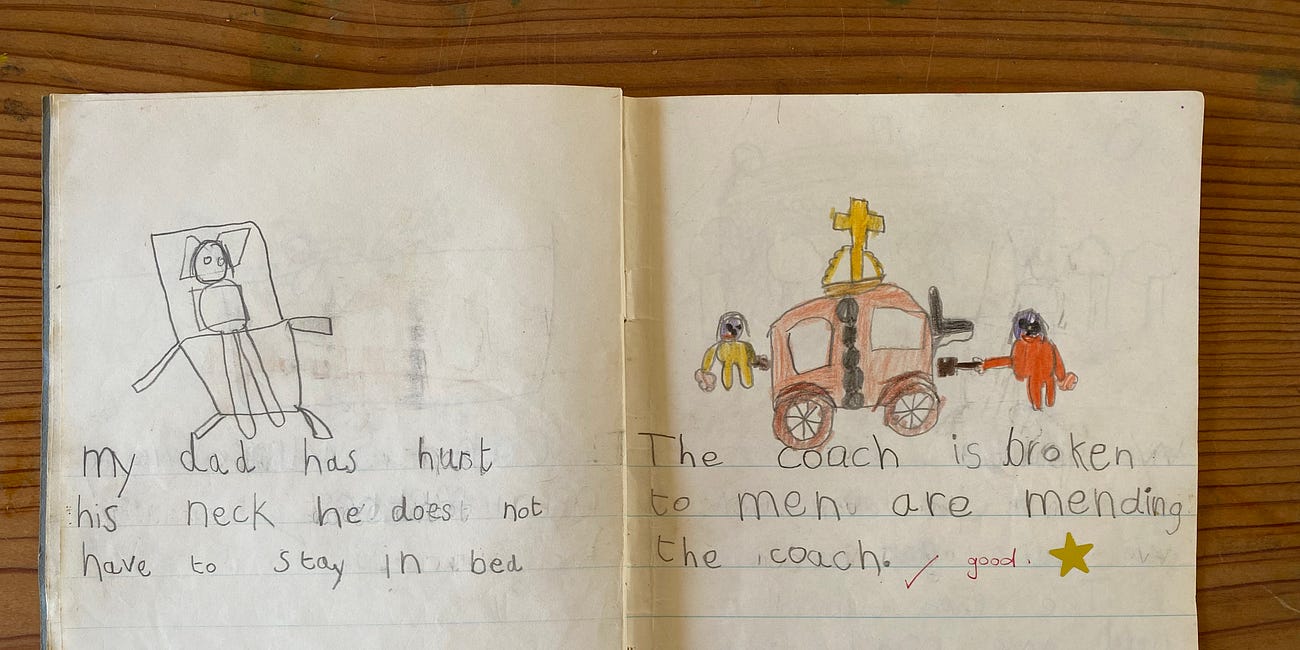 my dad has hurt
his neck he does not
have to stay in bed
The coach is broken
to men are mending
the coach. ✓ good.